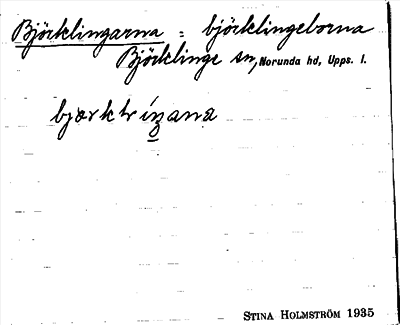 Björklingarna = björklingeborna
Björklinge sn, Norunda hd, Upps. l.
STINA HOLMSTRÖM 1935